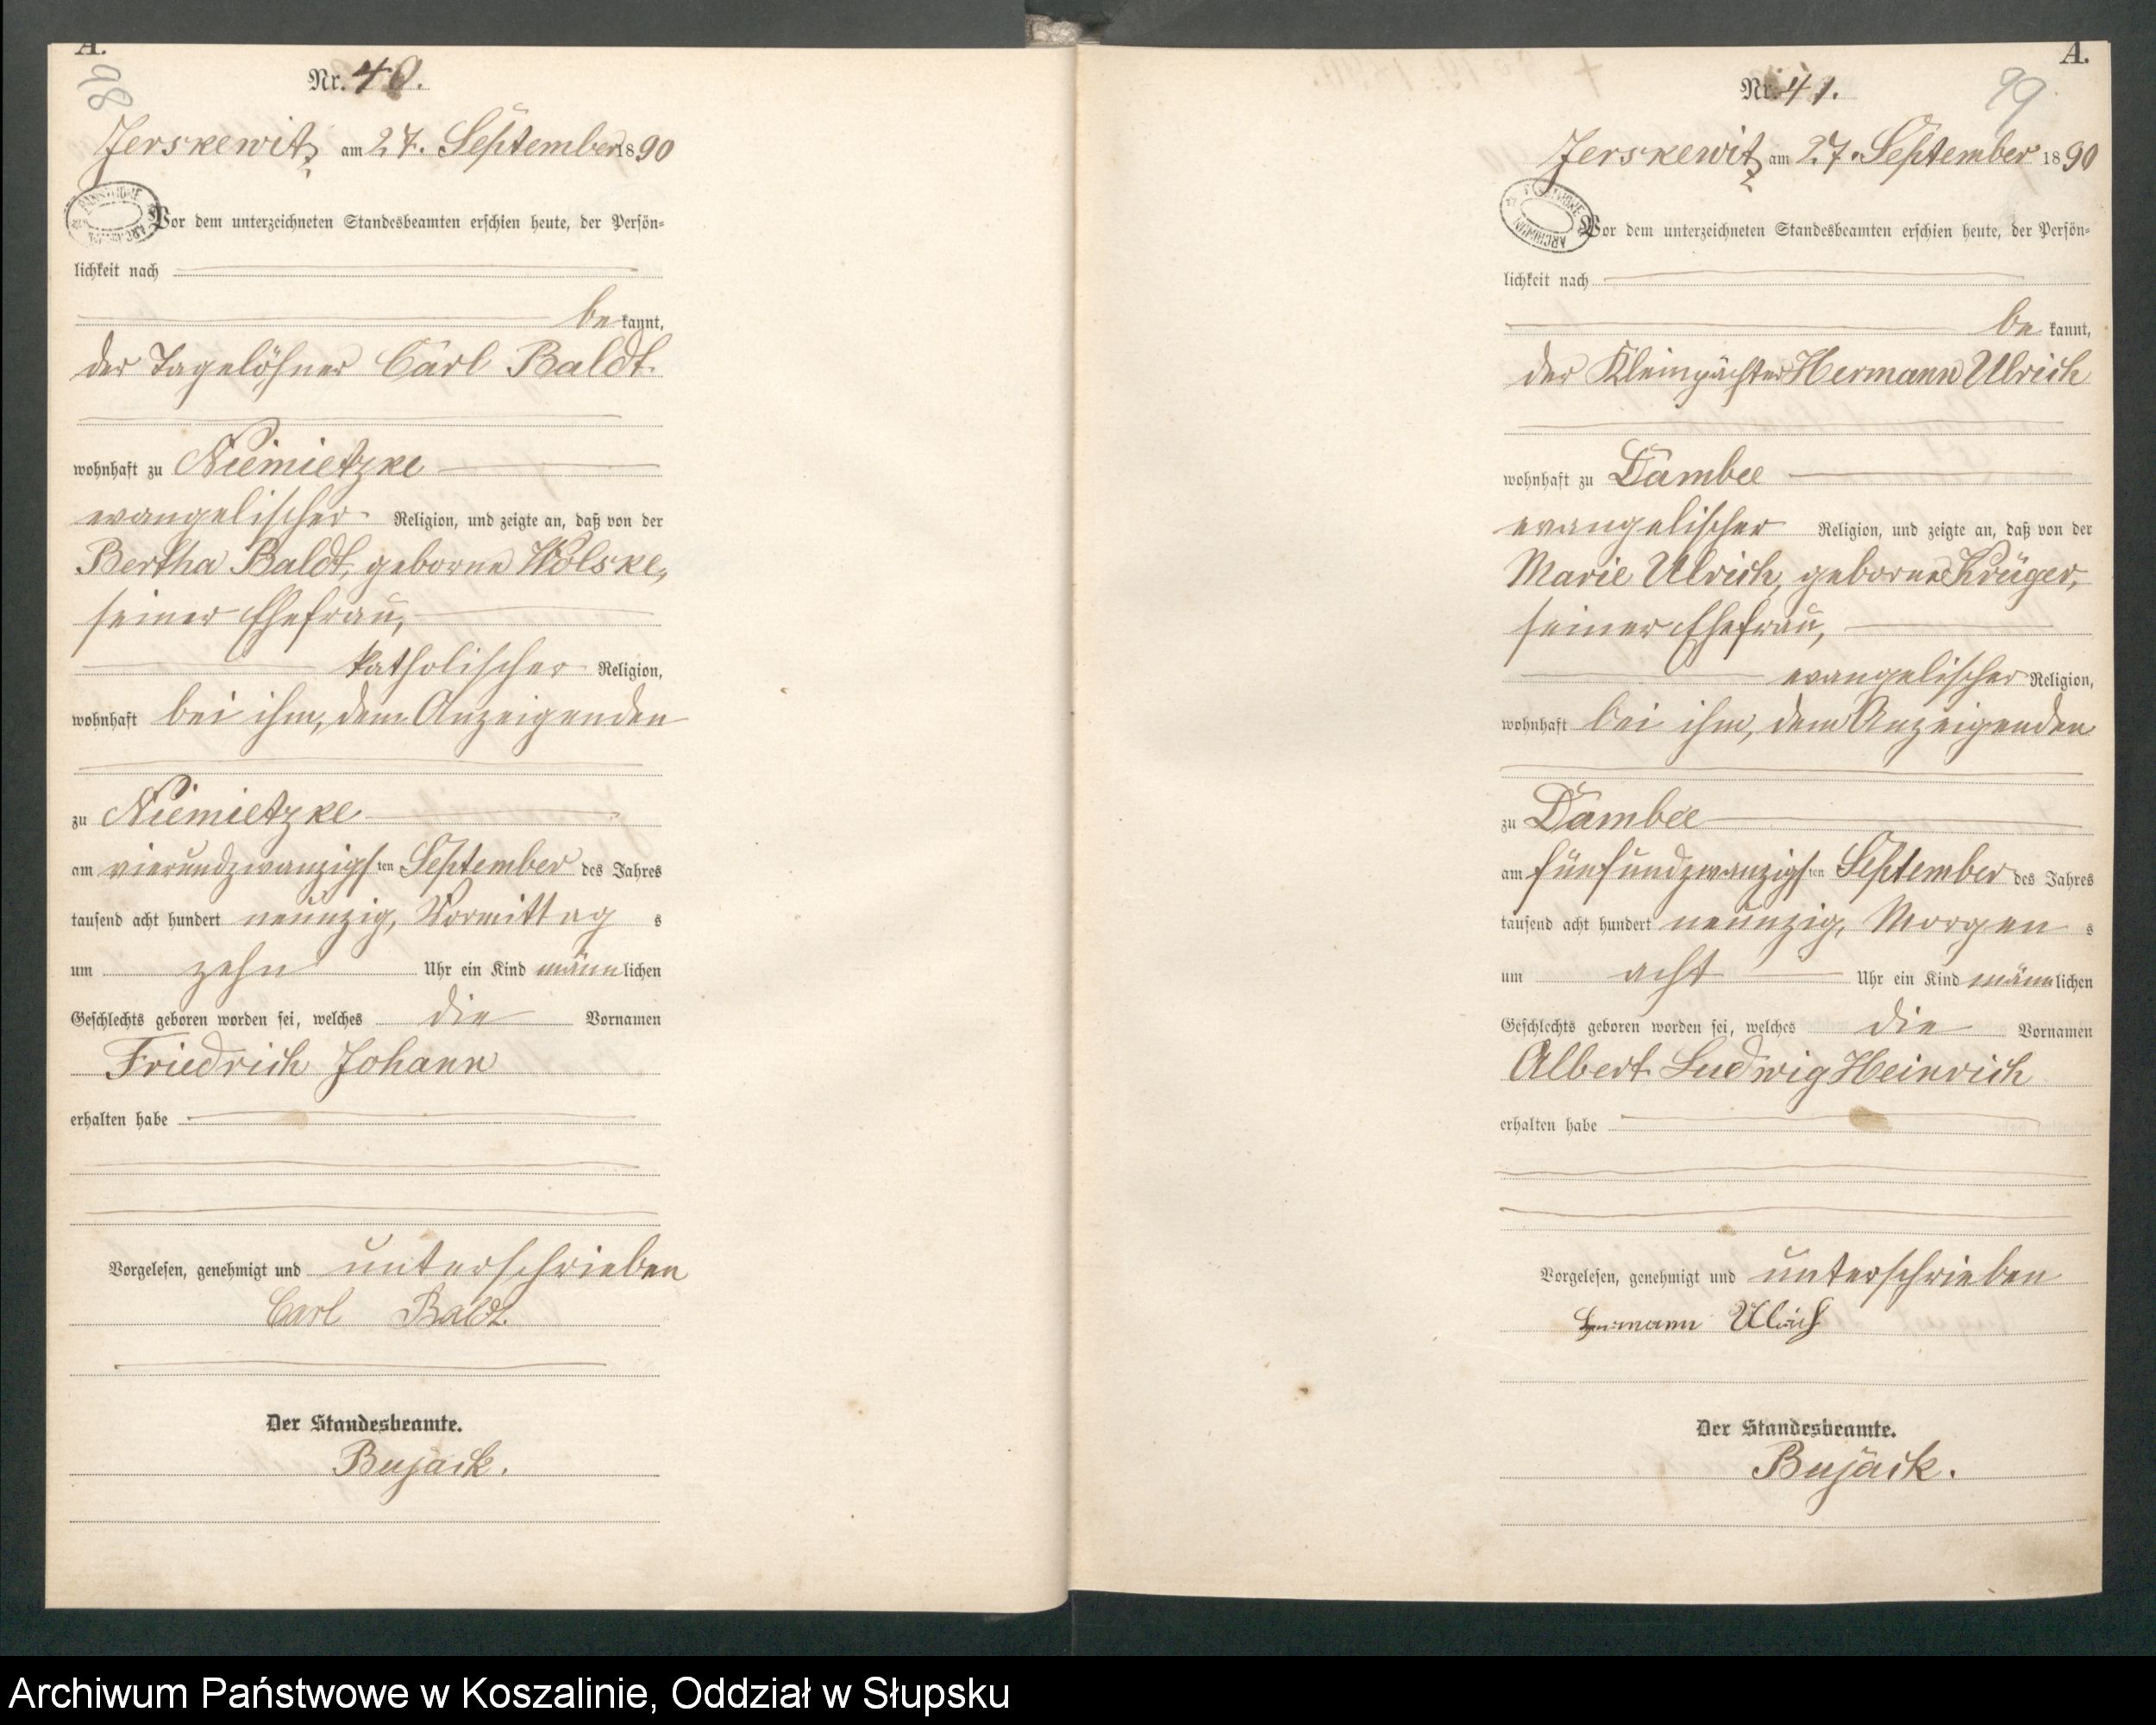 A.
98
Nr. 40.
Jerskewitz am 27. September 1890
Vor dem unterzeichneten Standesbeamten erschien heute, der Persön-
lichkeit nach
be kannt,
der Tagelöhner Carl Baldt.
wohnhaft zu Niemietzke
evangelischer Religion, und zeigte an, daß von der
Bertha Baldt, geborne Wolske,
seiner Ehefrau,
katholischer Religion,
wohnhaft bei ihm, dem Anzeigenden
zu Niemietzke
am vierundzwanzigsten September des Jahres
tausend acht hundert neunzig, Vormittag s
um zehn Uhr ein Kind männlichen
Geschlechts geboren worden sei, welches die Vornamen
Friedrich Johann
erhalten habe
Vorgelesen, genehmigt und unterschrieben
Carl Baldt.
Der Standesbeamte.
Bujack.
A.
99
Nr. 41.
Jerskewitz am 27. September 1890
Vor dem unterzeichneten Standesbeamten erschien heute, der Persön-
lichkeit nach
be kannt,
der Kleinpächter Hermann Ulrich
wohnhaft zu Dambee
evangelischer Religion, und zeigte an, daß von der
Marie Ulrich, geborne Krüger,
seiner Ehefrau,
evangelischer Religion,
wohnhaft bei ihm, dem Anzeigenden
zu Dambee
am fünfundzwanzigsten September des Jahres
tausend acht hundert neunzig, Morgen s
um acht Uhr ein Kind männlichen
Geschlechts geboren worden sei, welches die Vornamen
Albert Ludwig Heinrich
erhalten habe
Vorgelesen, genehmigt und unterschrieben
Hermann Ulrich
Der Standesbeamte.
Bujack.
Archiwum Państwowe w Koszalinie, Oddział w Słupsku